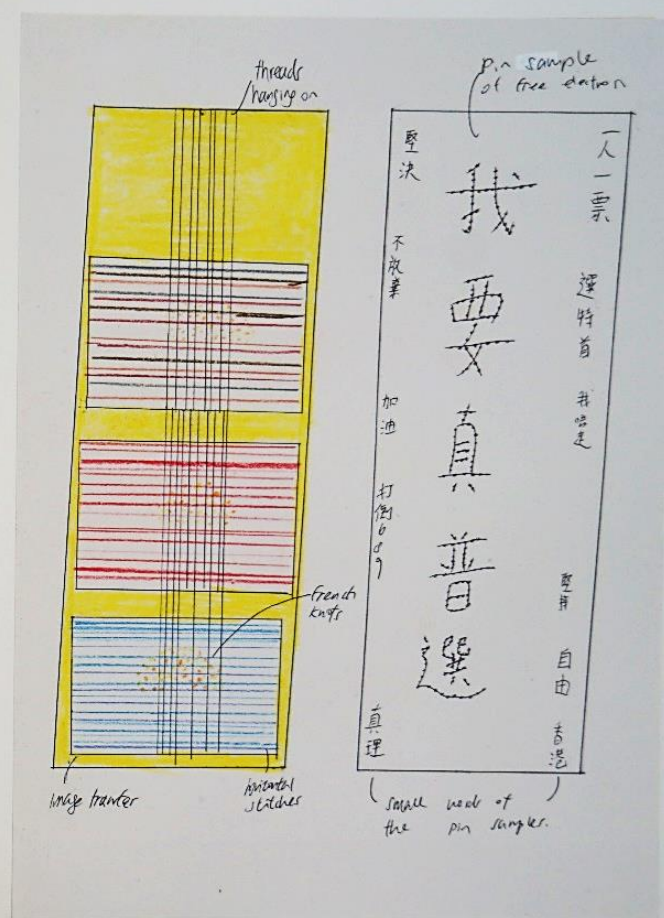 threads
hanging on
french
knots
image transfer
horizontal
stitches
pin sample
of free election
我要真普選
一人一票
選特首
堅持
自由
香港
堅決
不放棄
加油
打倒689
真理
small words of
the pin samples.